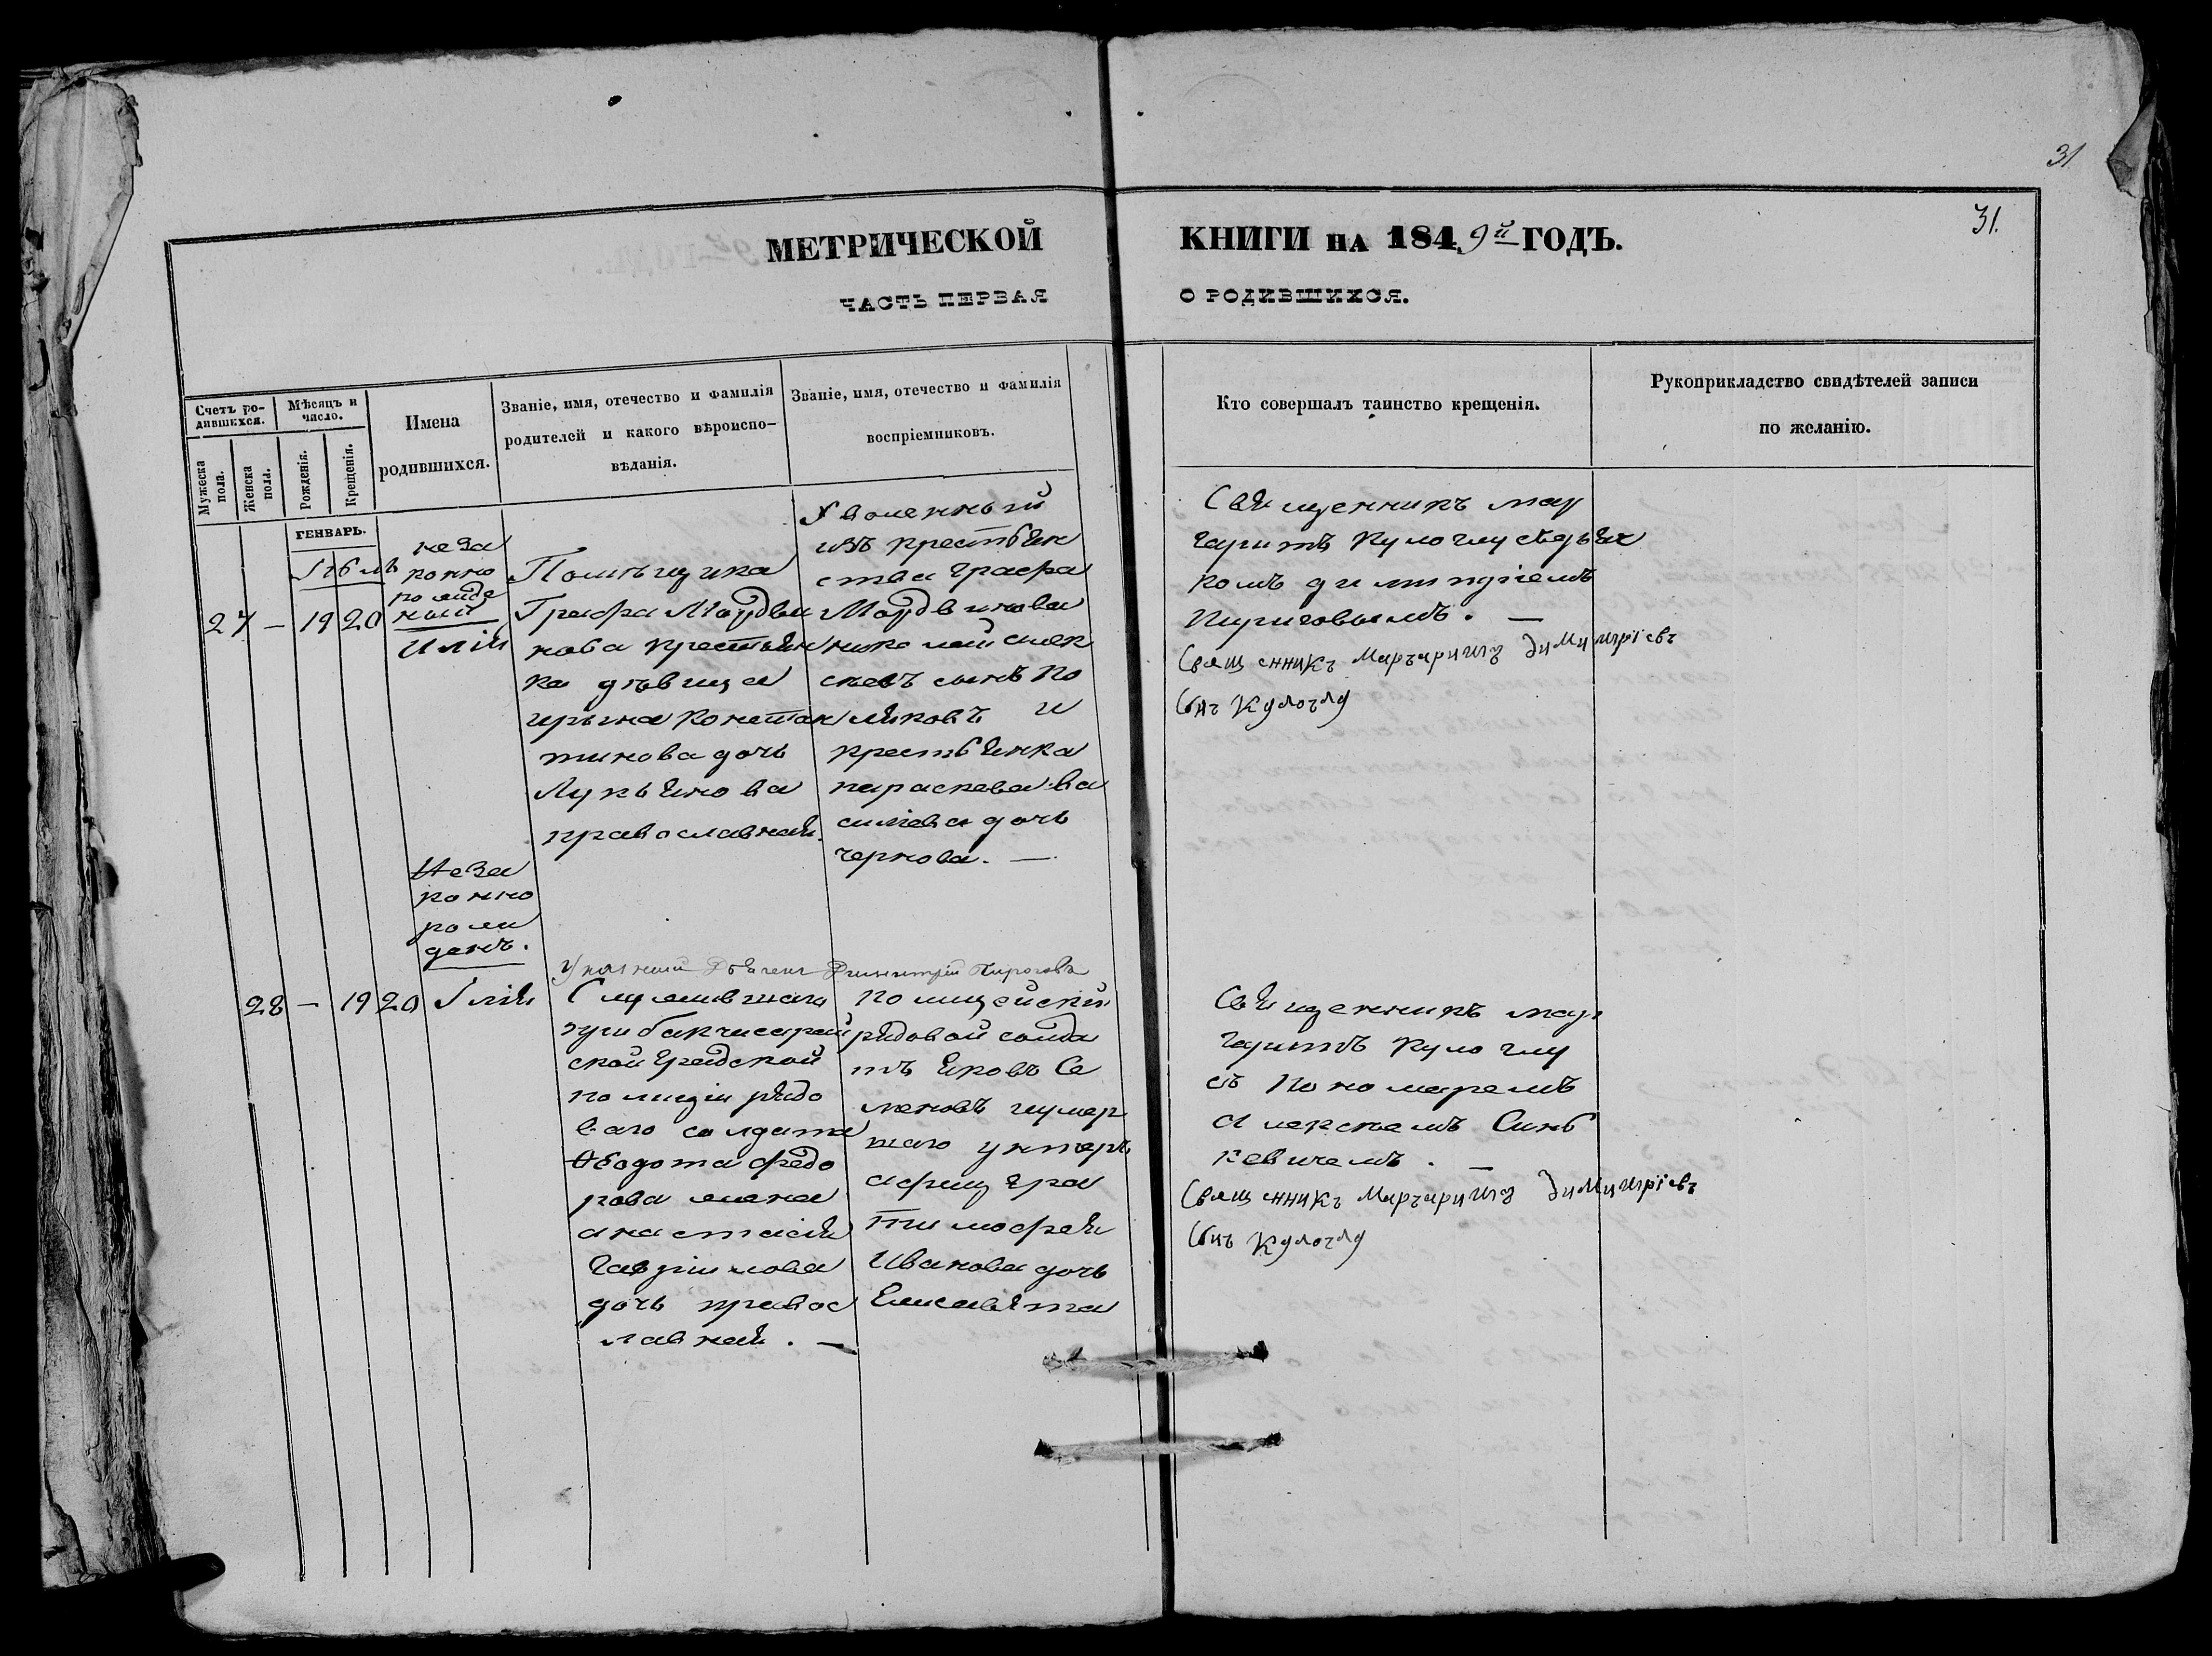 31
31.
МЕТРИЧЕСКОЙ КНИГИ НА 1849й ГОДЪ.
ЧАСТЬ ПЕРВАЯ О РОДИВШИХСЯ.
Счетъ ро-
дившихся.
Мужеска
пола.
Женска
пола.
Мѣсяцъ и
число.
Рожденія.
Крещенія.
Имена
родившихся.
Званіе, имя, отечество и фамилія
родителей и какого вѣроиспо-
вѣданія.
Званіе, имя, отечество и фамилія
воспріемниковъ.
Кто совершалъ таинство крещенія.
Рукоприкладство свидѣтелей записи
по желанію.
ГЕНВАРЬ.
Іюль
27 — 19 20
неза
конно
рожде
ный
Илія
Помѣщика
Графа Мордви
нова крестьян
ка дѣвица
ирына Констан
тинова дочь
Лукьянова
православная.
Уволенный
изъ крестьян
ства графа
Мордвинова
николай алек
сѣевъ сынъ По
ляковъ и
крестьянка
параскева ва
силіева дочь
чернова. —
Священникъ мар
гаритъ Кулоглу съ дья
комъ димитріемъ
Пироговымъ. —
Священникъ Маргаритъ Димитріевъ
Сынъ Кулоглу
28 — 19 20
Неза
конно
рож
денъ.
Илія
Указный Дьячекъ Димитрій Пироговъ
Служившаго
при бакчисарай
ской градской
полиціи рядо
ваго солдата
Ѳедота федо
рова жена
анастасія
Гавріилова
дочь правос
лавная. —
Полицейскій
рядовой солда
тъ Яковъ Се
меновъ и умер
шаго унтеръ
афицера
Тимофея
Иванова дочь
Елисавѣта
Священникъ мар
гаритъ Кулоглу
съ Пономаремъ
Алексѣемъ Синь
кевичемъ. —
Священникъ Маргаритъ Димитріевъ
Сынъ Кулоглу